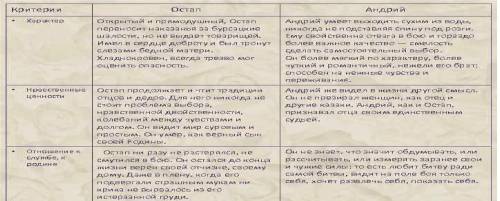 Критерии Остап Андрий
• Характер
Открытый и прямодушный, Остап
переносит наказания за бурсацкие
шалости, но не выдает товарищей.
Имел в сердце доброту и был тронут
слезами бедной матери.
Хладнокровен, всегда трезво мог
оценить опасность.
Андрий умеет выходить сухим из воды,
никогда не подставляя спину под розги.
Ему свойственна отвага в бою и гораздо
более важное качество — смелость
сделать самостоятельный выбор.
Он более мягкий по характеру, более
чуткий и романтичный, нежели его брат;
способен на нежные чувства и
переживание.
• Нравственные
ценности
Остап продолжает и чтит традиции
отцов и дедов. Для него никогда не
стоит проблема выбора,
нравственной двойственности,
колебаний между чувствами и
долгом. Он видит мир суровым и
простым. Он умер, как верный сын
своей Родины.
Андрий не видел в жизни другой смысл.
Он не презирал женщин, как отец и
другие казаки. Андрий, как и Остап,
признавал отца своим единственным
судьей.
• Отношение к
службе, к
родине
Остап ни разу не растерялся, не
смутился в бою. Он остался до конца
жизни верен своей отчизне, своему
дому. Даже в плену, когда его
подвергали страшным мукам ни
крика не вырвалось из его
истерзанной груди.
Он не знает, что значит обдумывать, или
рассчитывать, или измерять заранее свои
и чужие силы; то есть любит битву ради
самой битвы, видит на поле боя только
себя, хочет развлечь себя, показать себя.